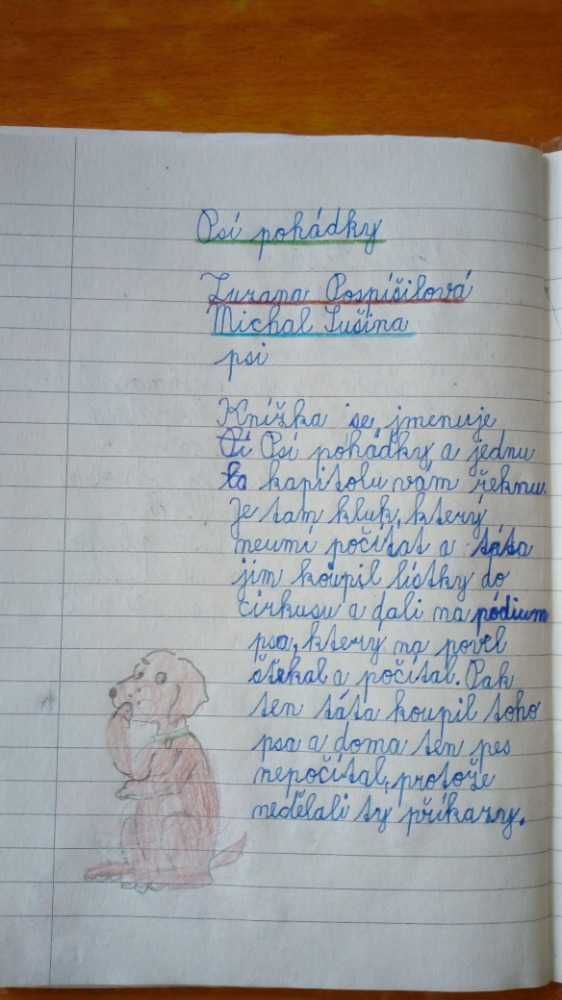 Psí pohádky
Zuzana Pospíšilová
Michal Sušina
psi
Knížka se jmenuje
Psí pohádky a jednu
ta kapitolu vám řeknu.
Je tam kluk, který
neumí počítat a táta
jim koupil lístky do
cirkusu a dali na pódium
psa, který na povel
štěkal a počítal. Pak
ten táta koupil toho
psa a doma ten pes
nepočítal, protože
nedělali ty příkazy.